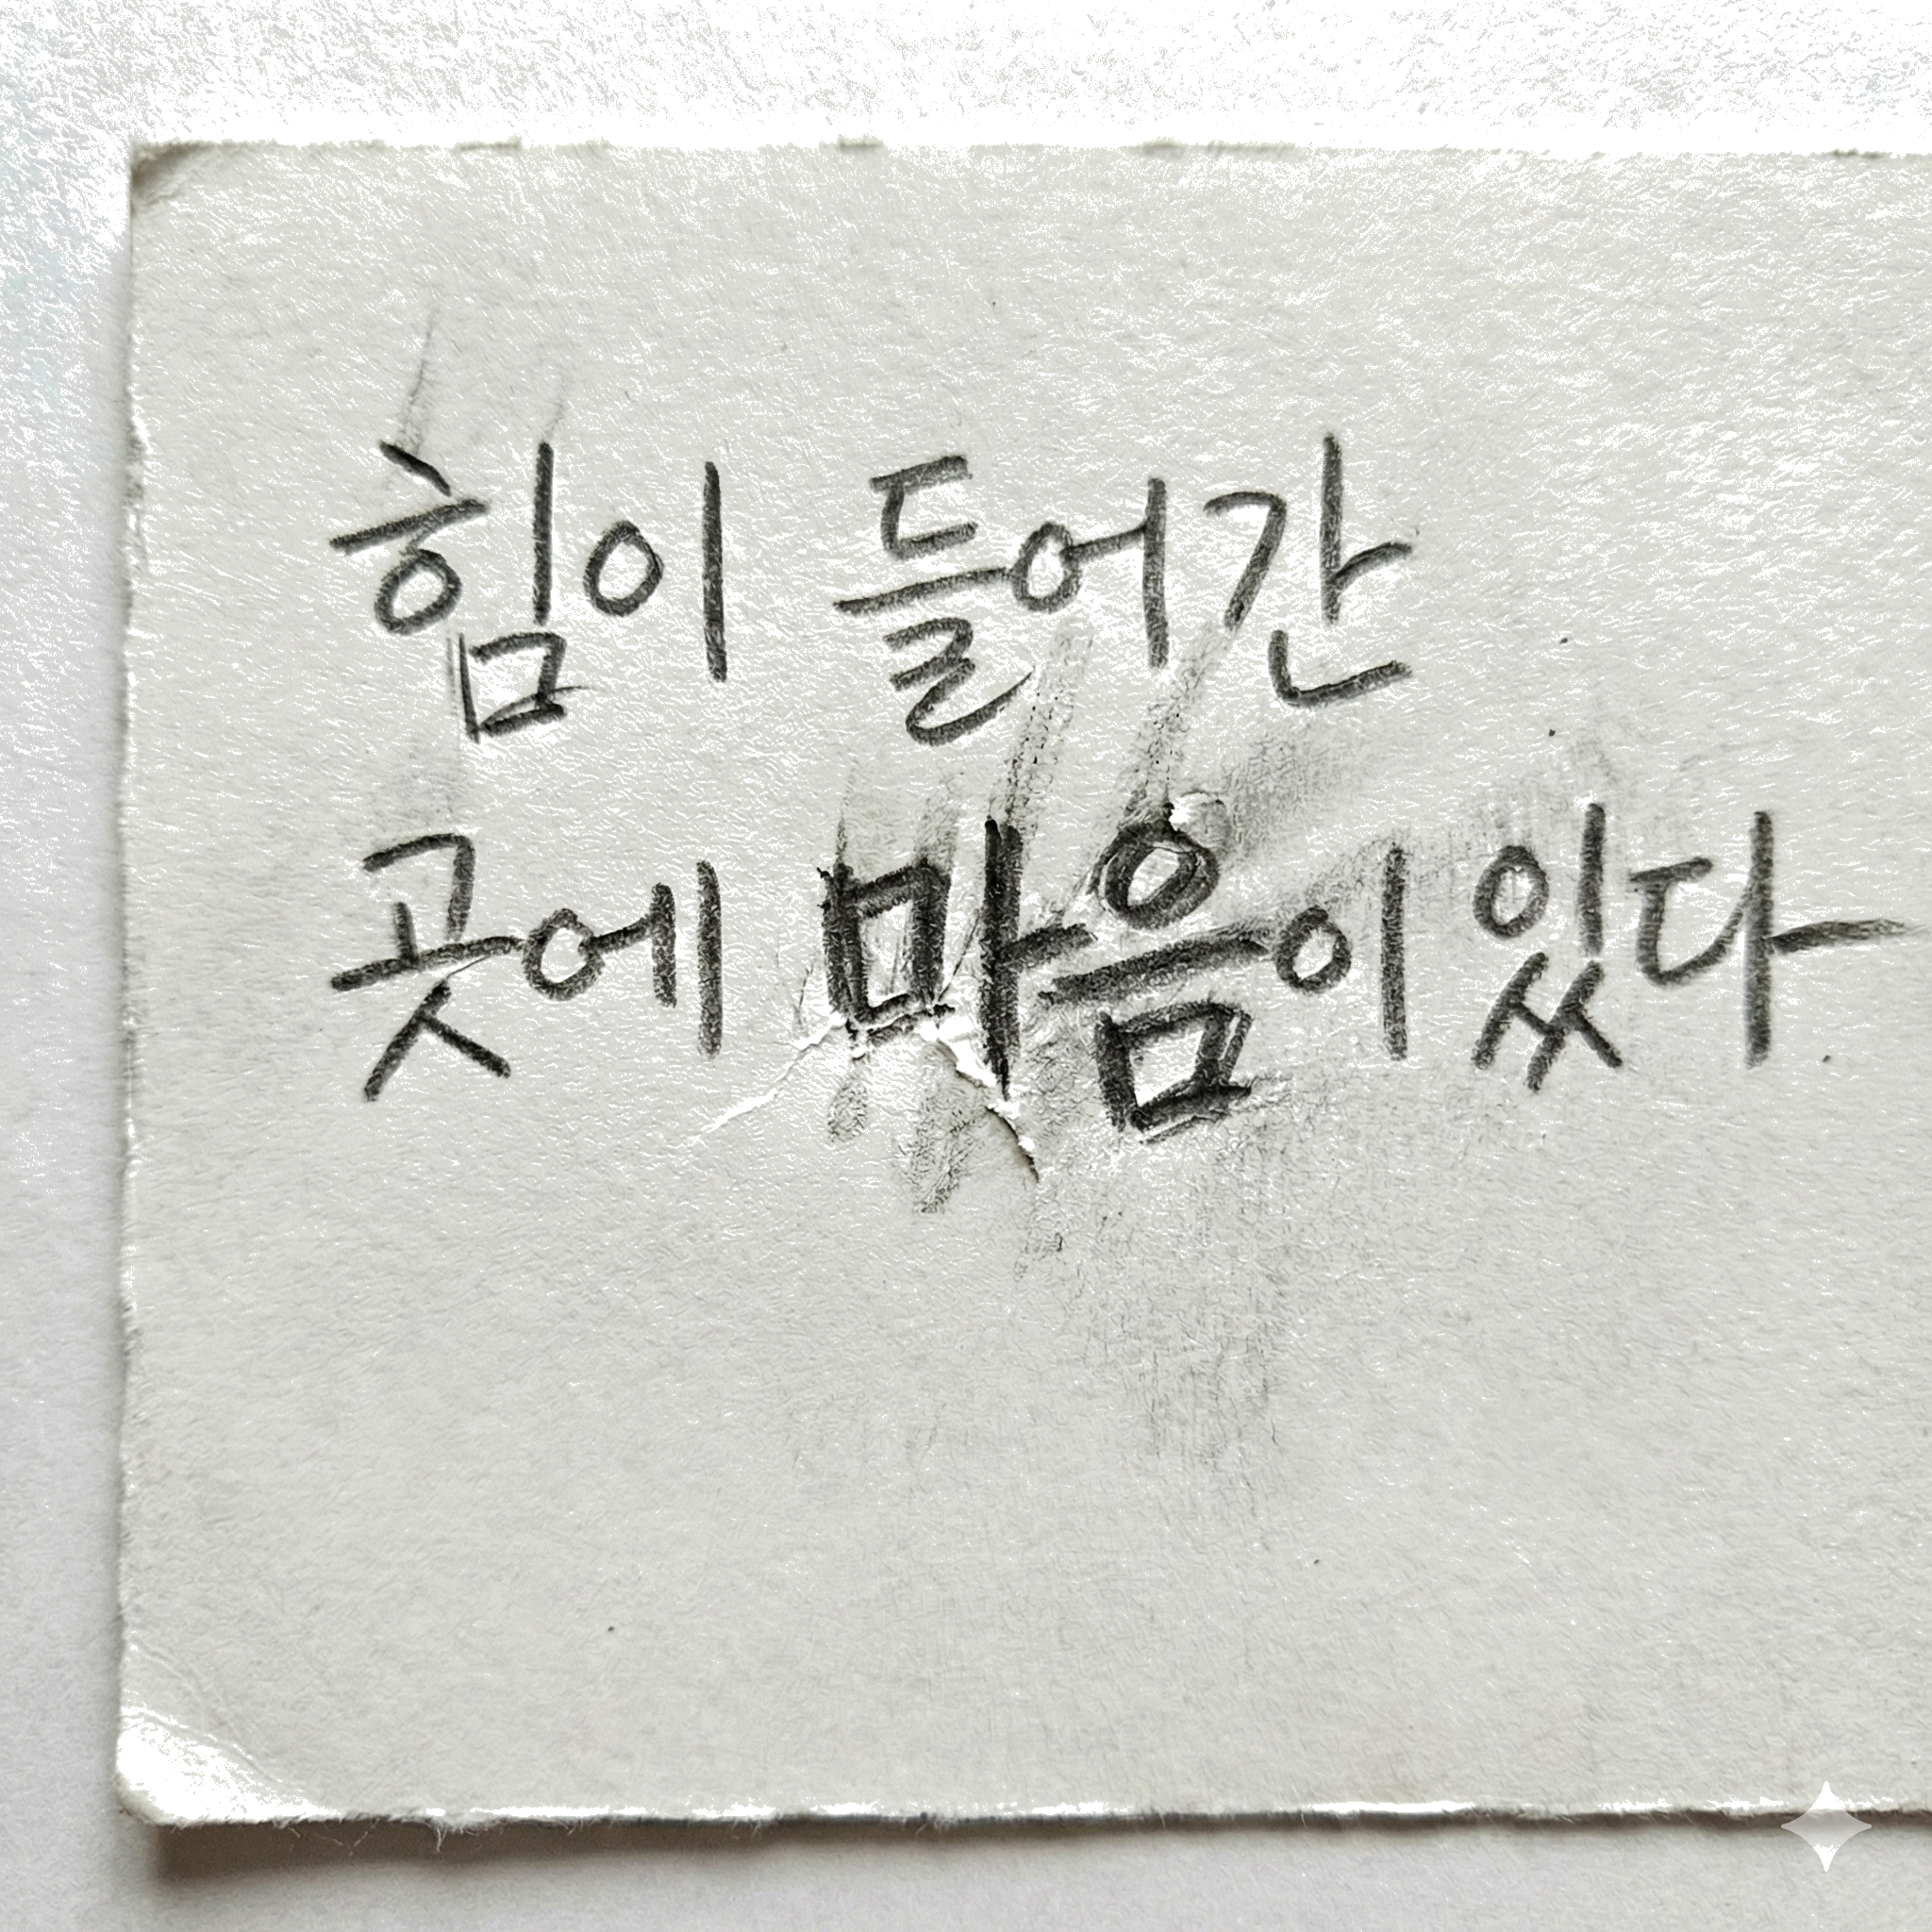 힘이 들어간
곳에 마음이 있다